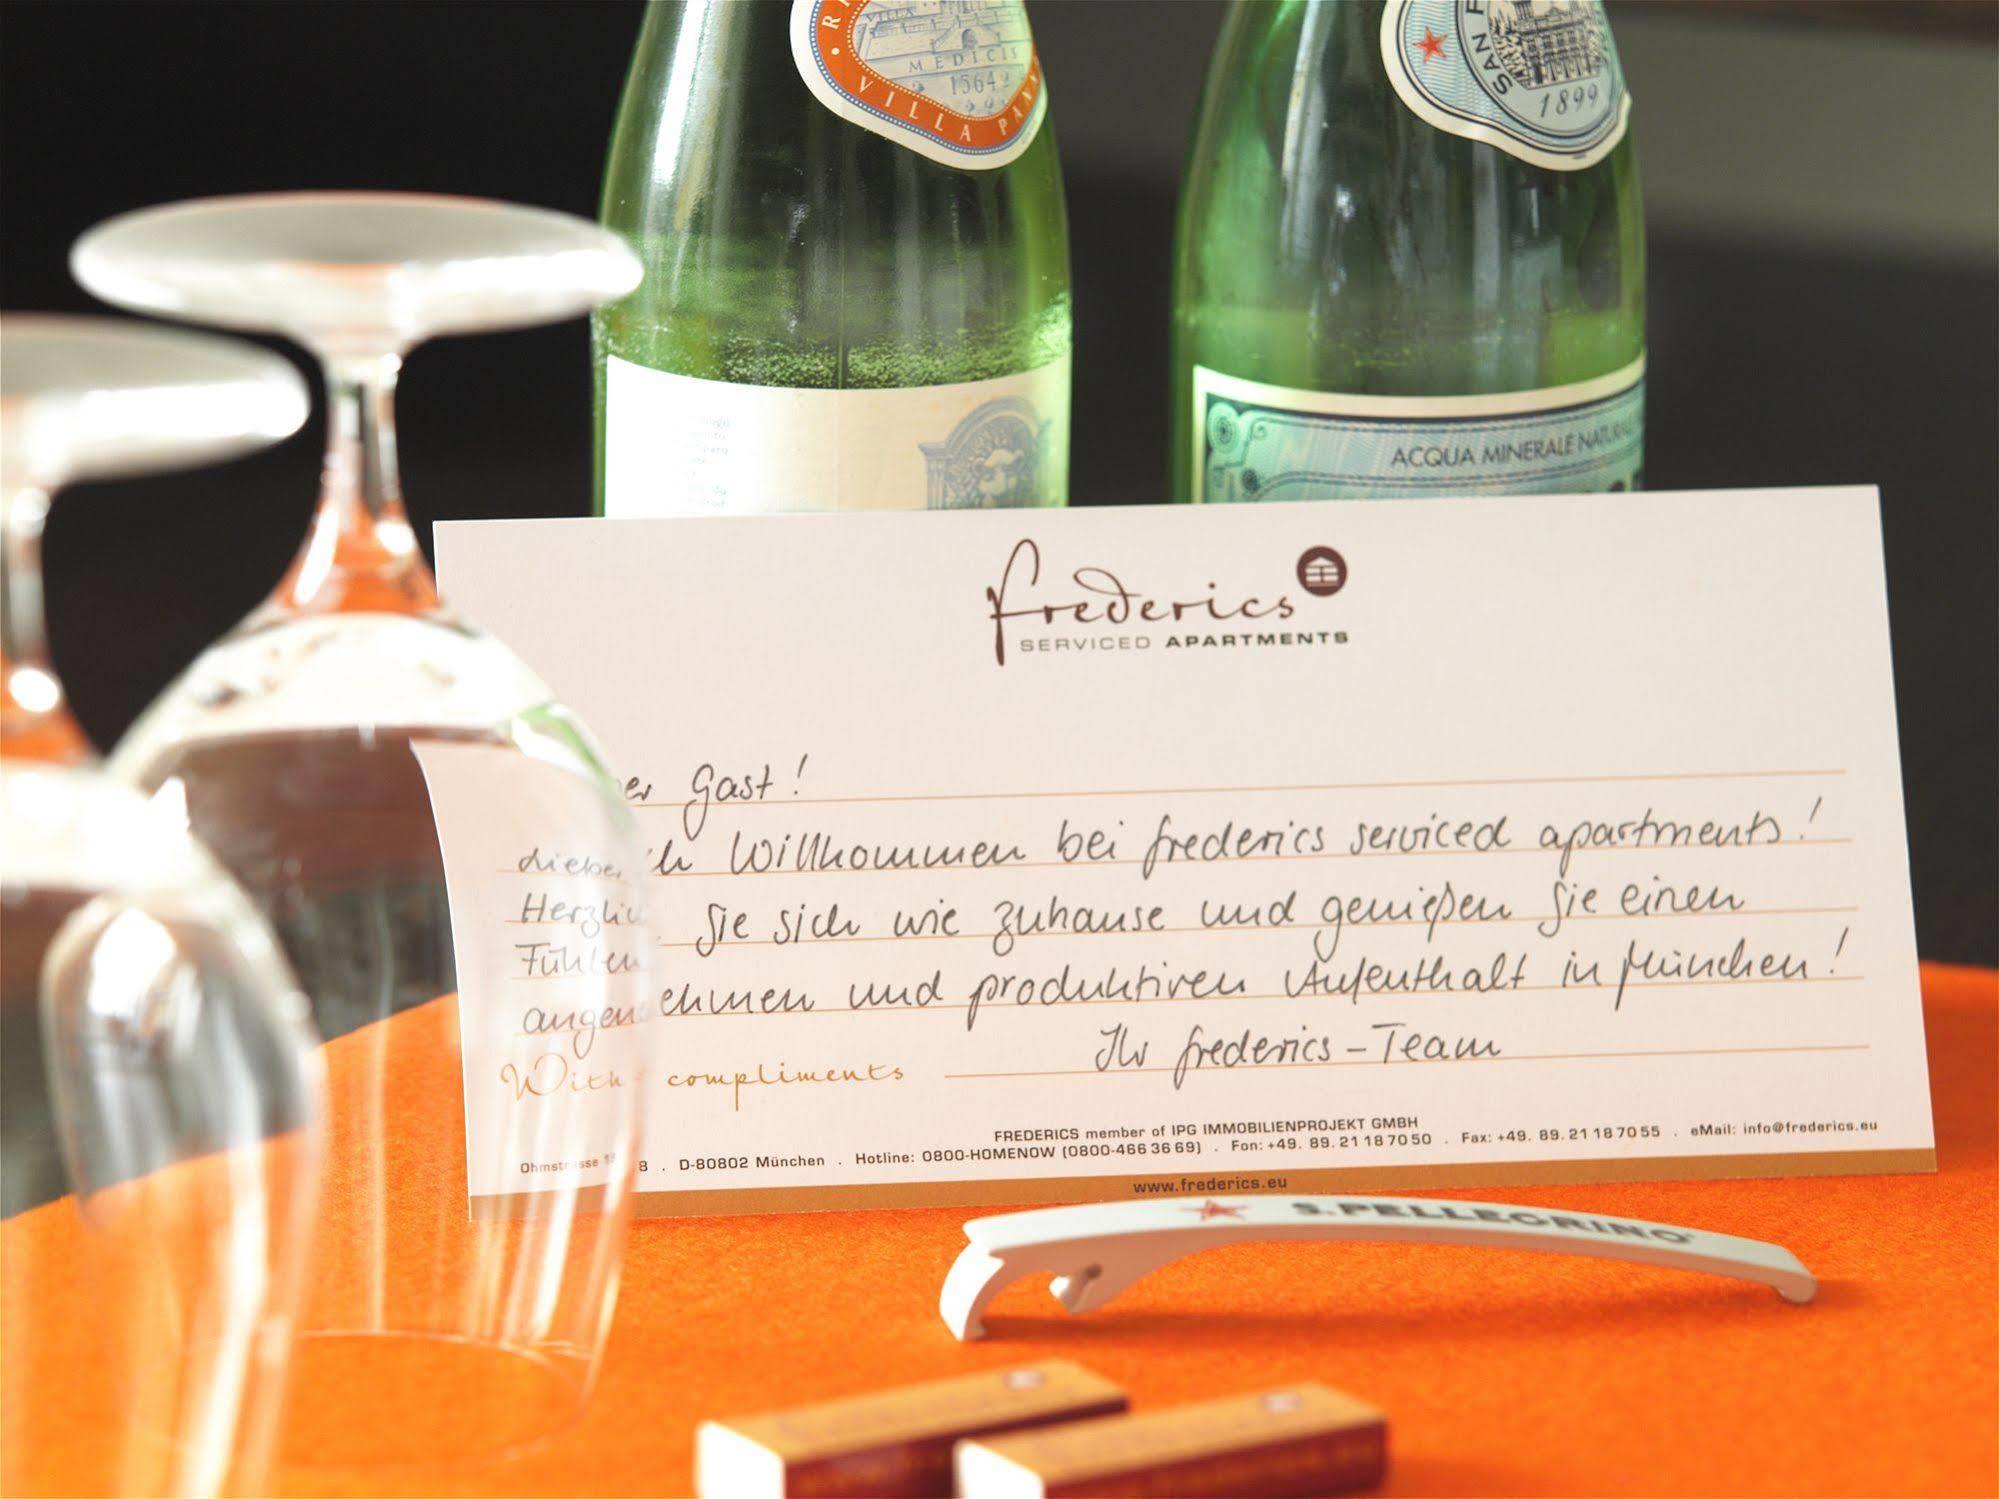 MEDICIS
1564
VILLA PAN
SAN
1899
ACQUA MINERALE NATURAL
frederics
SERVICED APARTMENTS
Lieber Gast!
Herzlich Willkommen bei frederics serviced apartments!
Fühlen Sie sich wie zuhause und genießen Sie einen
angenehmen und produktiven Aufenthalt in München!
Ihr frederics-Team
With compliments
FREDERICS member of IPG IMMOBILIENPROJEKT GMBH
8 . D-80802 München . Hotline: 0800-HOMENOW (0800-466 36 69) . Fon: +49. 89. 21 18 70 50 . Fax: +49. 89. 21 18 70 55 . eMail: info@frederics.eu
www.frederics.eu
S.PELLEGRINO